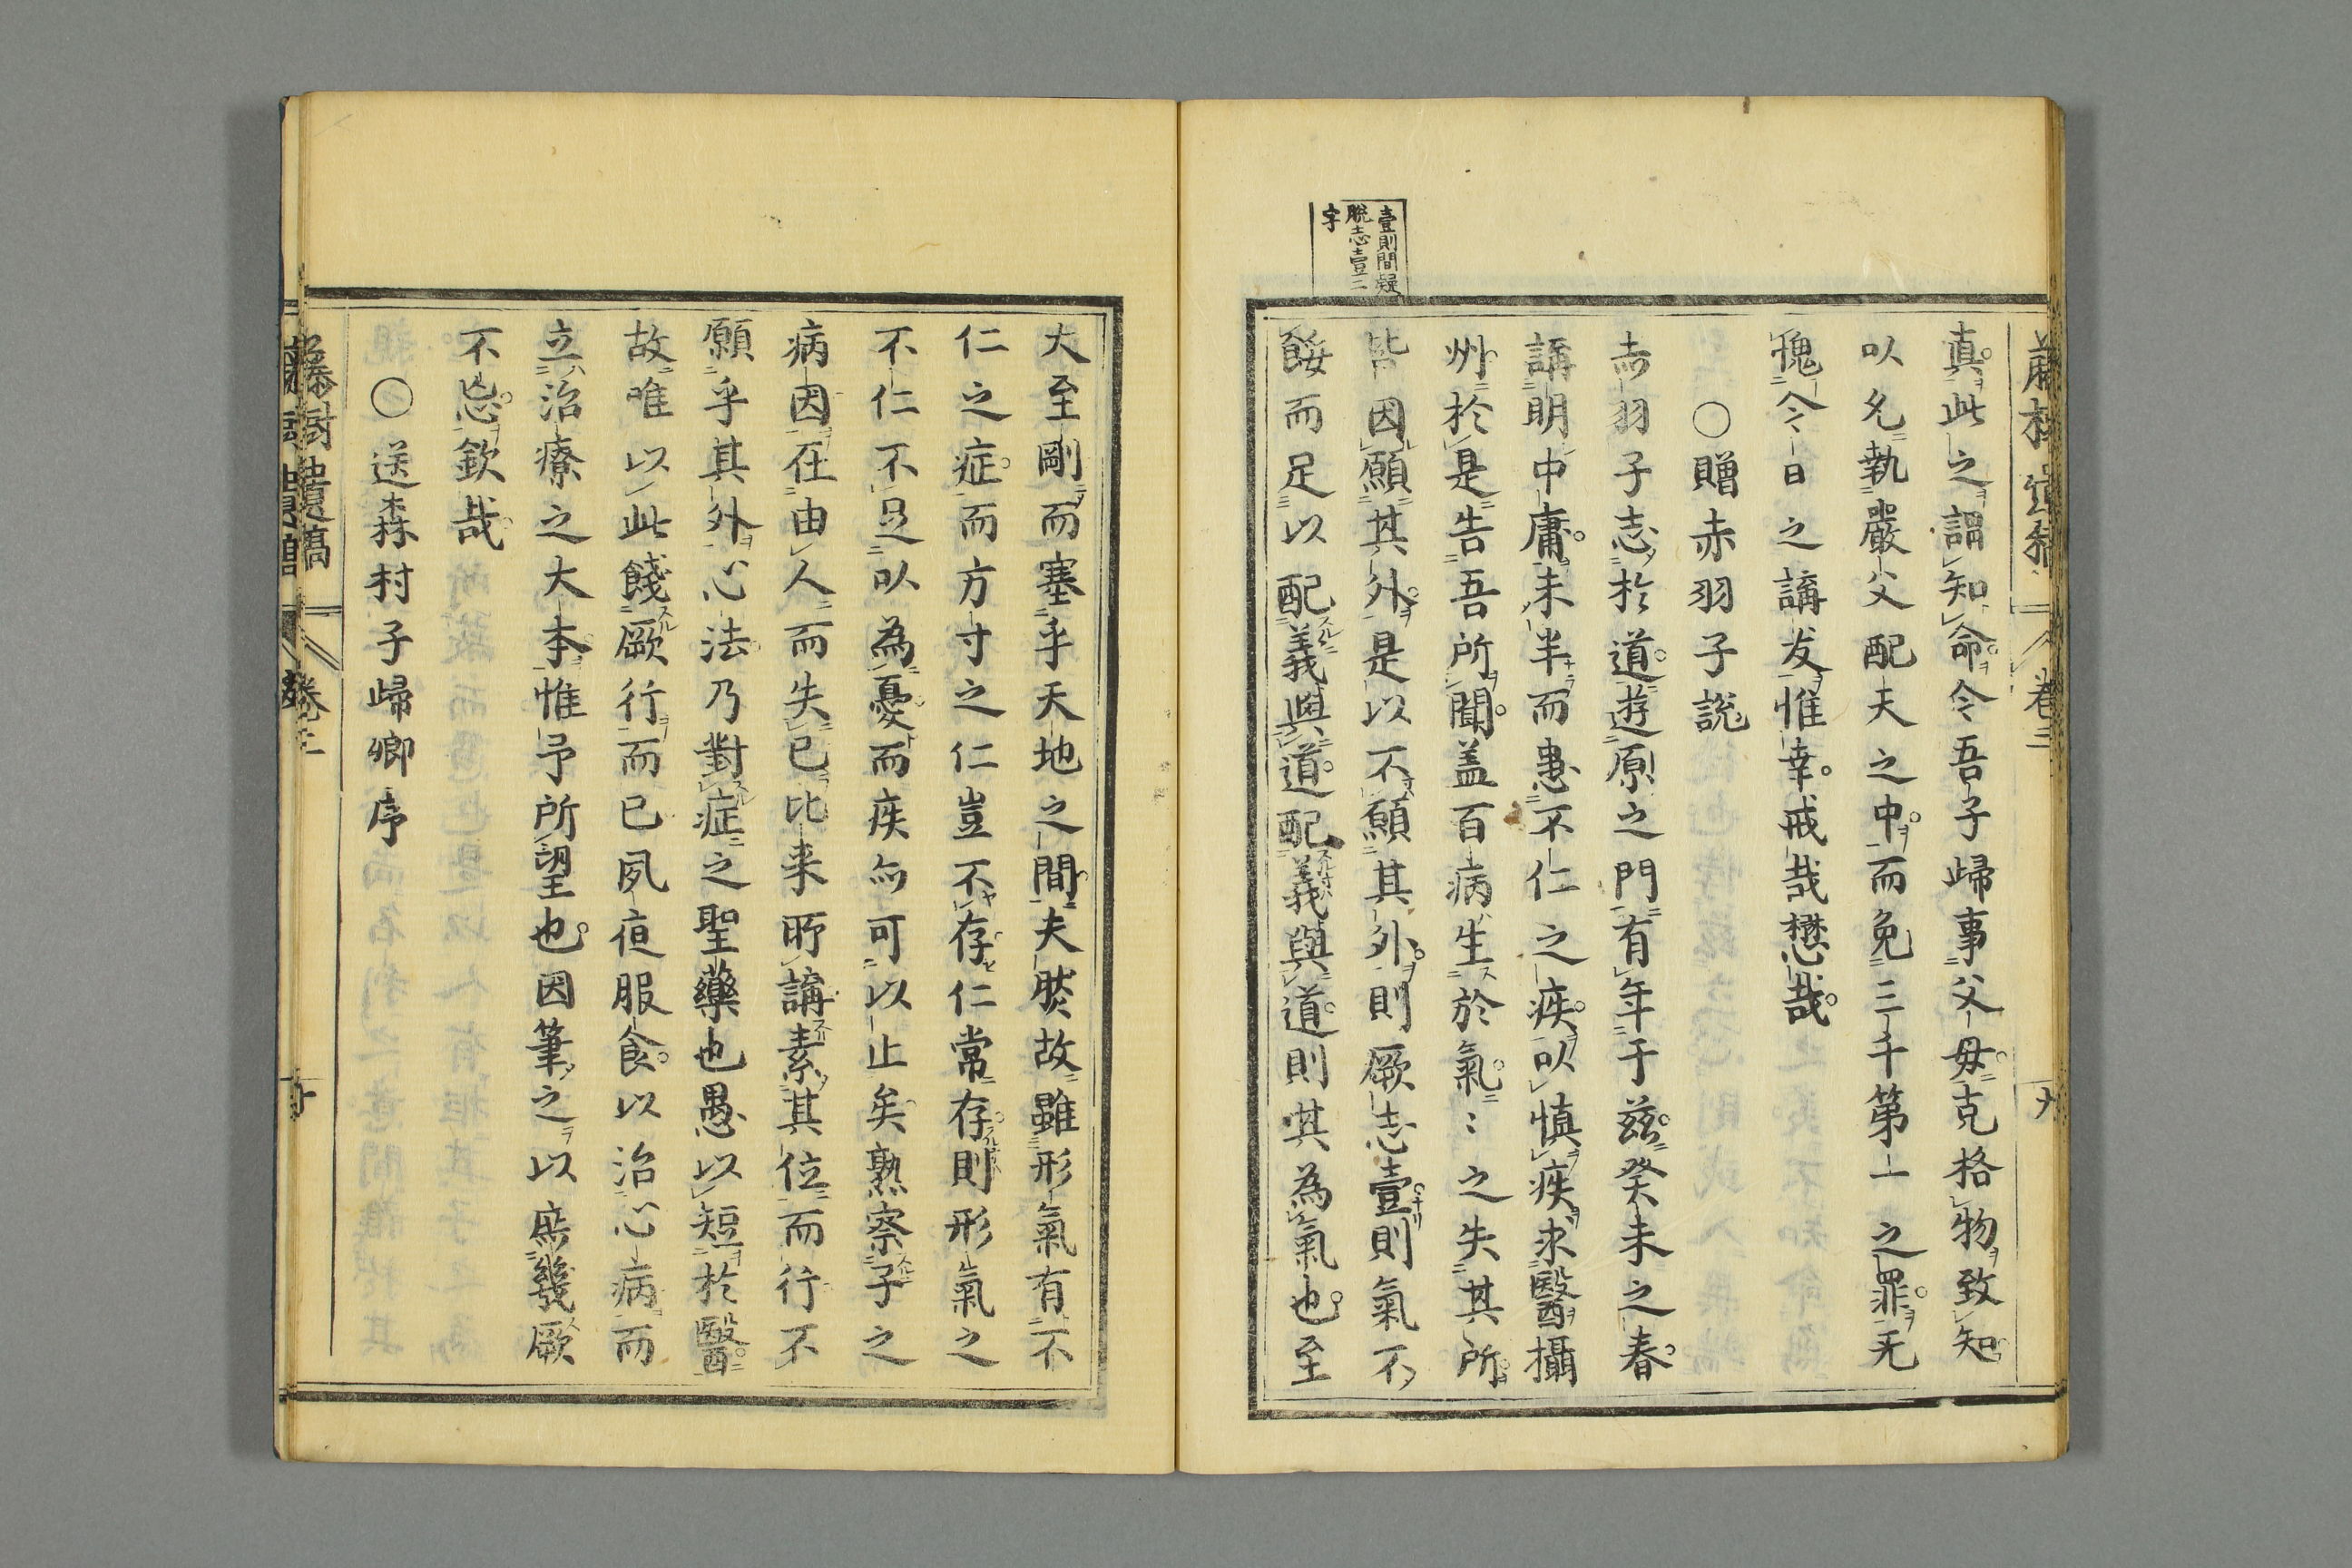 壹則間疑
脫志壹二
字
卷三
真此之謂知命令吾子歸事父母克格物致知
以允執嚴父配天之中而免三千第一之罪无
愧今日之講友惟幸戒哉懋哉
○贈赤羽子說
赤羽子志於道遊原之門有年于茲癸未之春
講明中庸未半而患不仁之疾以慎疾求醫攝
州於是告吾所聞盖百病生於氣〻之失其所
皆因願其外是以不願其外則厥志壹則氣不
餒而足以配義與道配義與道則其為氣也至
大至剛而塞乎天地之間夫然故雖形氣有不
仁之症而方寸之仁豈不存仁常存則形氣之
不仁不足以為憂而疾亦可以止矣熟察子之
病因在由人而失已比来所講素其位而行不
願乎其外心法乃對症之聖藥也愚以短於醫
故唯以此餞厥行而已夙夜服食以治心病而
立治療之大本惟予所望也因筆之以庶幾厥
不忘欽哉
○送森村子歸鄉序
藤樹遺稿 卷三